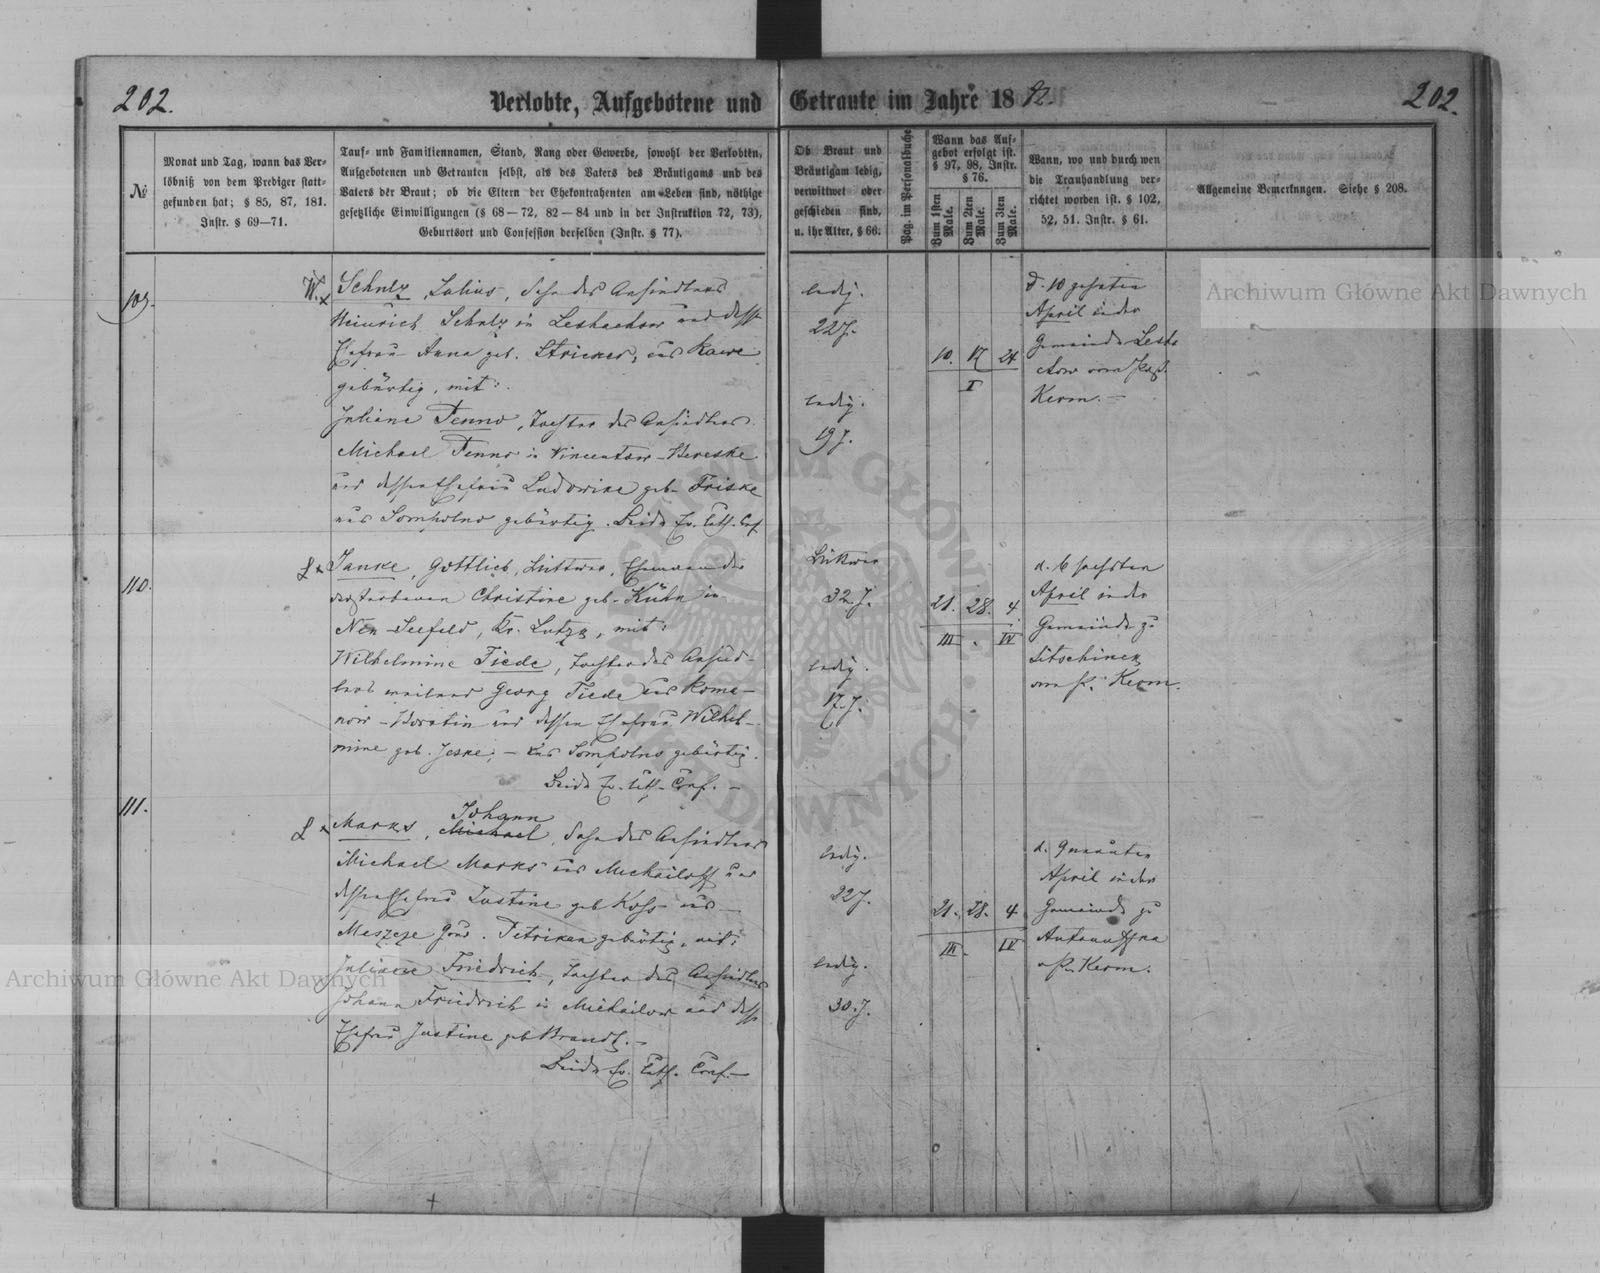 202.
Verlobte, Aufgebotene und Getraute im Jahre 18 82.
202.
№
Monat und Tag, wann das Ver-
löbniß von dem Prediger statt-
gefunden hat; § 85, 87, 181.
Instr. § 69—71.
Tauf- und Familiennamen, Stand, Rang oder Gewerbe, sowohl der Verlobten,
Aufgebotenen und Getrauten selbst, als des Vaters des Bräutigams und des
Vaters der Braut; ob die Eltern der Ehekontrahenten am Leben sind, nöthige
gesetzliche Einwilligungen (§ 68—72, 82—84 und in der Instruktion 72, 73),
Geburtsort und Confession derselben (Instr. § 77).
Ob Braut und
Bräutigam ledig,
verwittwet oder
geschieden sind,
u. ihr Alter, § 66.
Pag. im Personalbuche
Wann das Auf-
gebot erfolgt ist.
§ 97, 98, Instr.
§ 76.
Zum 1sten
Male.
Zum 2ten
Male.
Zum 3ten
Male.
Wann, wo und durch wen
die Trauhandlung ver-
richtet worden ist. § 102,
52, 51. Instr. § 61.
Allgemeine Bemerkungen. Siehe § 208.
109.
W. x Schulz, Julius, Sohn des Ansiedlers
Heinrich Schulz in Leshachow und dess.
Ehefrau Anna geb. Stricker, aus Kawe
gebürtig, mit:
Juliane Tenno, Tochter des Ansiedlers
Michael Tenno in Vincentow-Bereske
und dessen Ehefrau Ludowike geb. Friske
aus Sompolno gebürtig. Beide Ev. Luth. Conf.
ledig.
22 J.
ledig.
19 J.
10. 17 24
I
d. 10 zehnten
April in der
Gemeinde Lesh-
chow vom Past.
Kerm. —
110.
L x Janke, Gottlieb, Wittwer, Ehemann der
verstorbenen Christine geb. Kühn in
Neu-Seefeld, Kr. Lutzk, mit:
Wilhelmine Tiede, Tochter des Ansied-
lers weiland Georg Tiede aus Roma-
now-Boratin und dessen Ehefrau Wilhel-
mine geb. Jeske, — aus Sompolno gebürtig.
Beide Ev. Luth. Conf. —
Wittwer
32 J.
ledig.
17 J.
21. 28. 4
III . IV
d. 6 sechsten
April in der
Gemeinde zu
Sitschinek
vom P. Kerm.
111.
L x Marks, Johann Michael, Sohn des Ansiedlers
Michael Marks aus Michailoff und
dessen Ehefrau Justine geb. aus
Gouv. Petrikau gebürtig, mit:
Juliane Friedrich, Tochter des Ansiedlers
Johann Friedrich in Michailow und dess.
Ehefrau Justine geb. Brandt. —
Beide Ev. Luth. Conf. —
ledig.
22 J.
ledig.
30. J.
21. 28. 4
III. IV
d. 9 neunten
April in der
Gemeinde zu
Antonoffka
v. P. Kerm.
Archiwum Główne Akt Dawnych
Archiwum Główne Akt Dawnych
ARCHIWUM GŁÓWNE AKT DAWNYCH